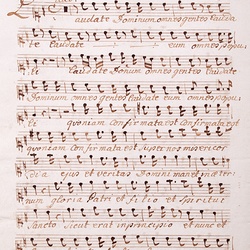 Laudate Dominum omnes gentes Lauda
te Laudate eum omnes popu,
li Laudate Dominum omnes gentes Laudate
Dominum omnes gentes Laudate eum omnes popu,
li quoniam confirmata est confirmata est
quoniam confirmata est super nos misericor
dia ejus et veritas Domini manet in æter,
num gloria Patri et Filio et Spiritui
Sancto Sicut erat in principio et nunc et